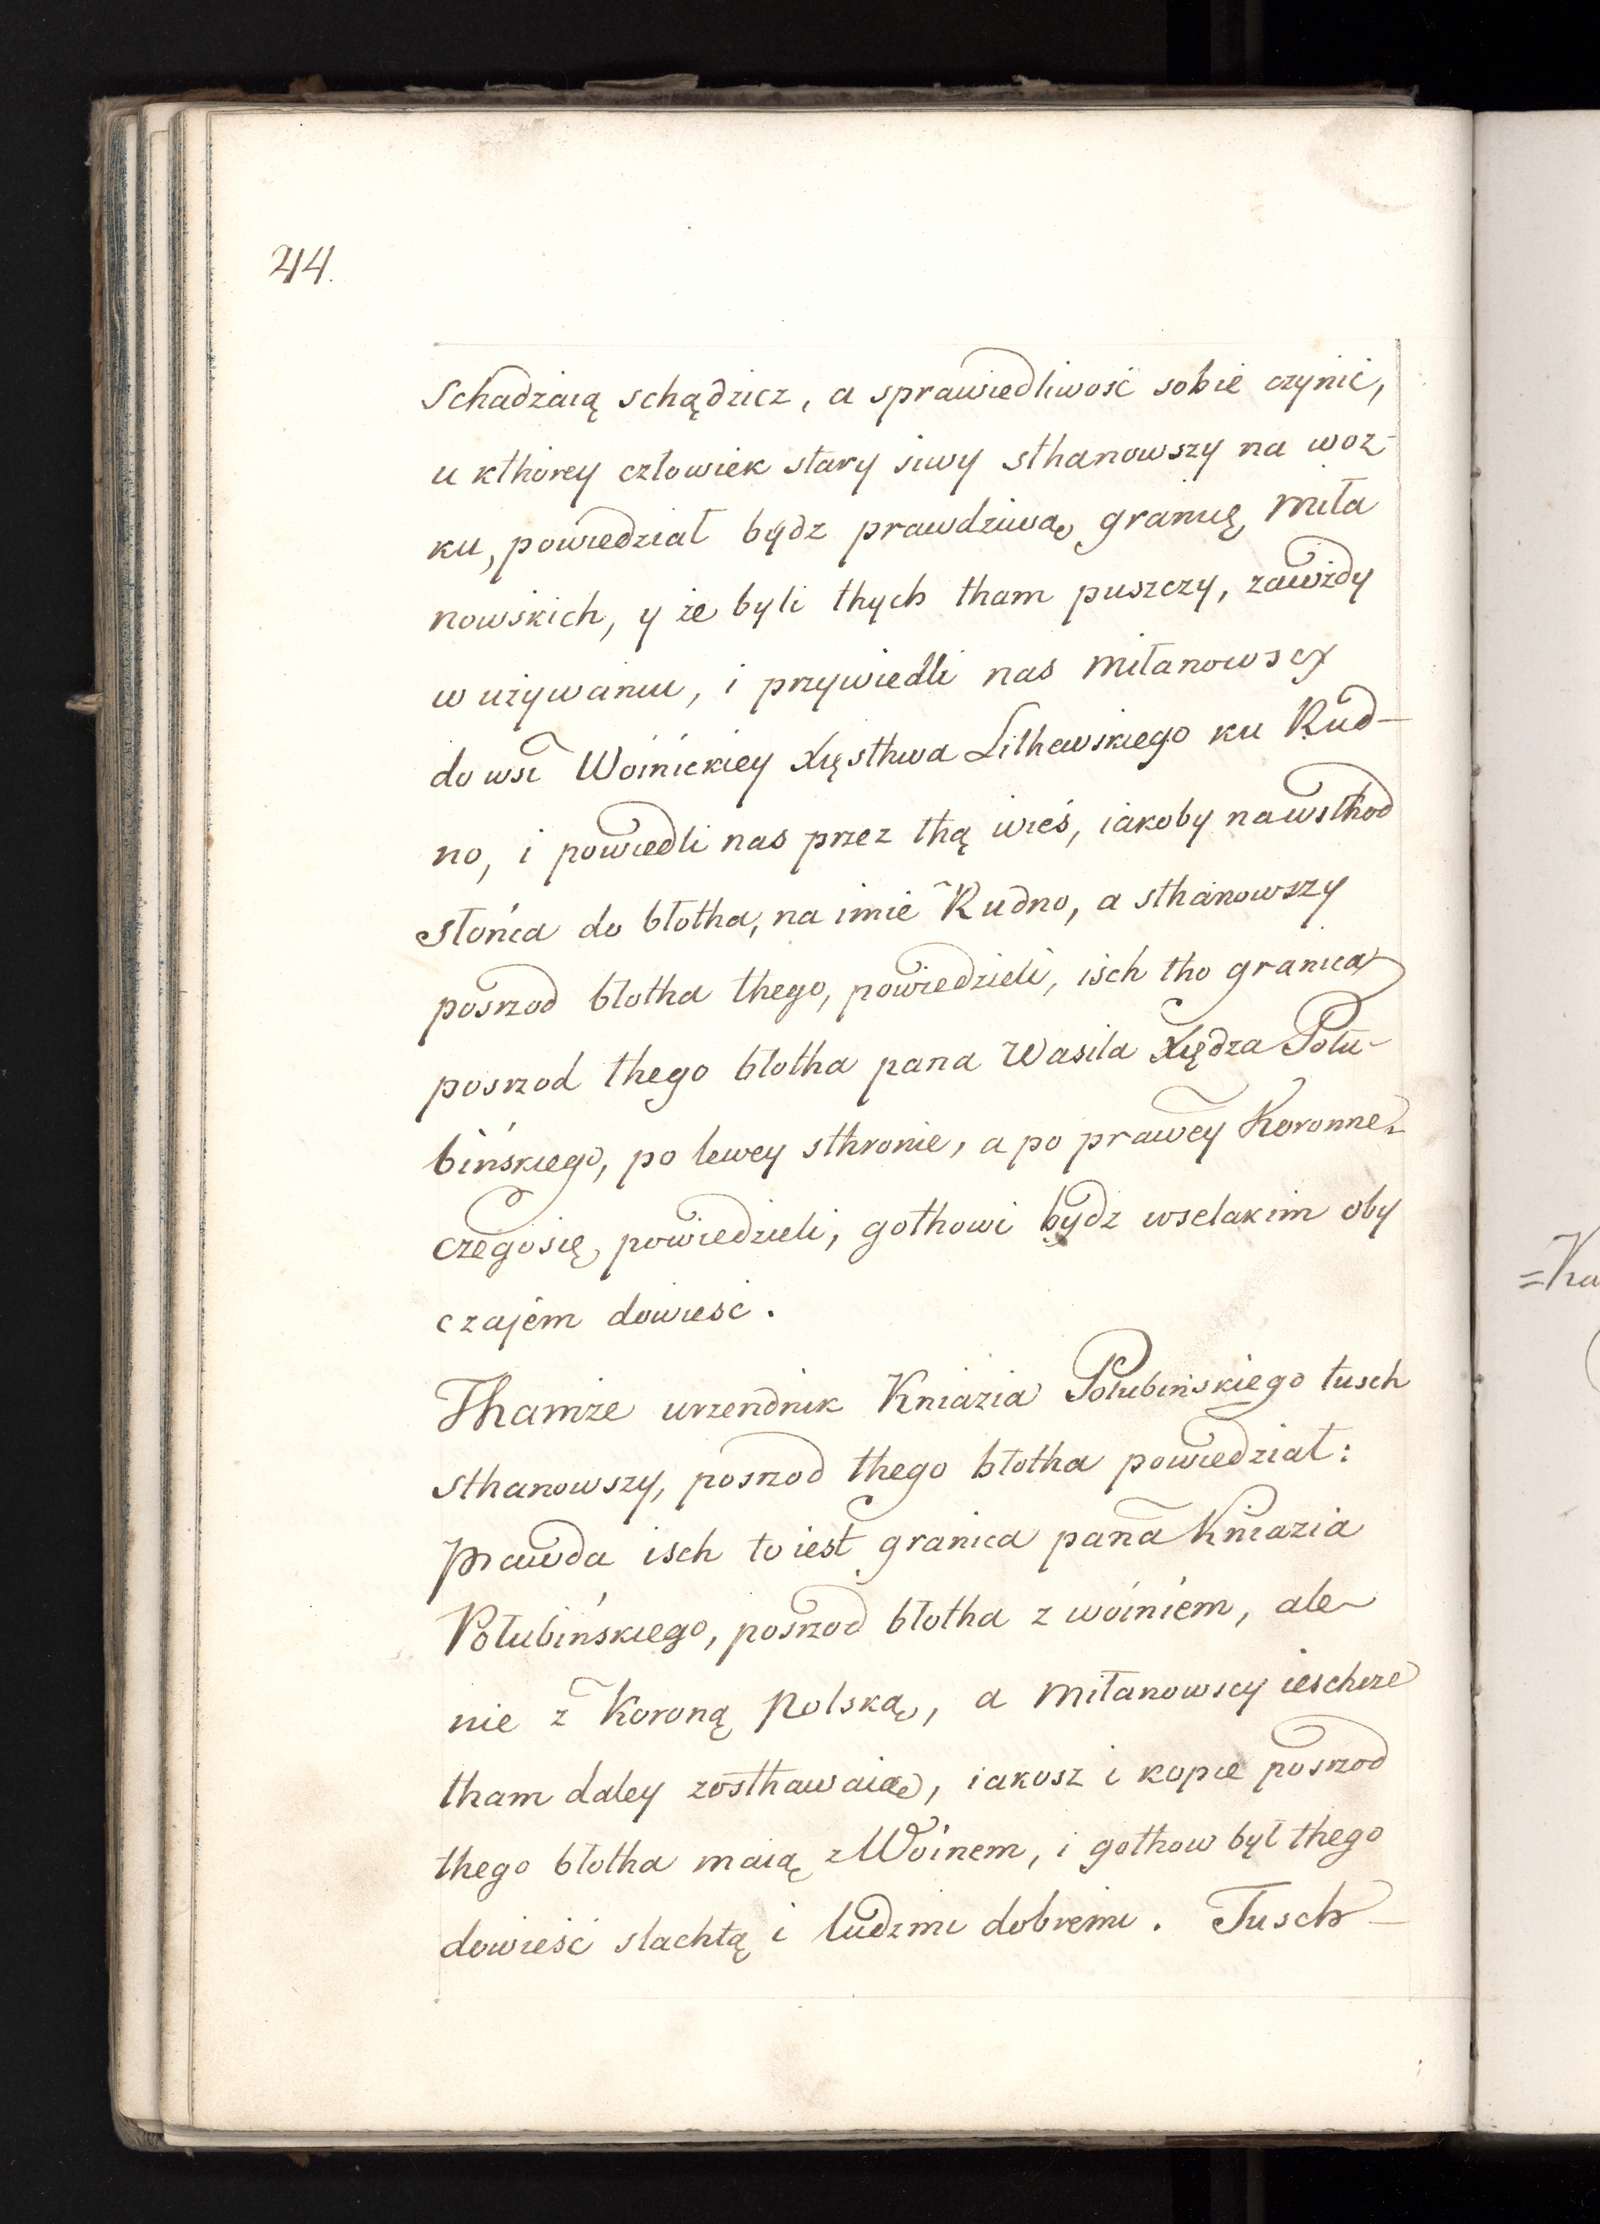 44.
Schadzaią schądzicz, a sprawiedliwość sobie czynić,
u kthorey człowiek stary siwy sthanowszy na woz-
ku, powiedział bydz prawdziwą granicę Miła
nowskich, y że byli thych tham puszczy, zawżdy
w używaniu, i przywiedli nas Miłanowscy
do wsi Woinickiey Xięsthwa Lithewskiego ku Rud-
no, i powiedli nas przez thą wieś, iakoby na wsthod
słońca do błotha, na imie Rudno, a sthanowszy
posrzod błotha thego, powiedzieli, isch tho granica
posrzod thego błotha pana Wasila Xiędza Połu-
bińskiego, po lewey sthronie, a po prawey Koronne
czego się powiedzieli, gothowi bydz wselakim oby
czajem dowieść.
Thamże urzendnik Kniazia Połubińskiego tusch
sthanowszy, posrzod thego błotha powiedział:
prawda isch to iest granica pana Kniazia
Połubińskiego, posrzod błotha z woiniem, ale
nie z Koroną Polską, a Miłanowscy ieschcze
tham daley zosthawaią, iakosz i kopce posrzod
thego błotha maią z Woinem, i gothow był thego
dowieść slachtą i ludzmi dobremi. Tusch
=Ka